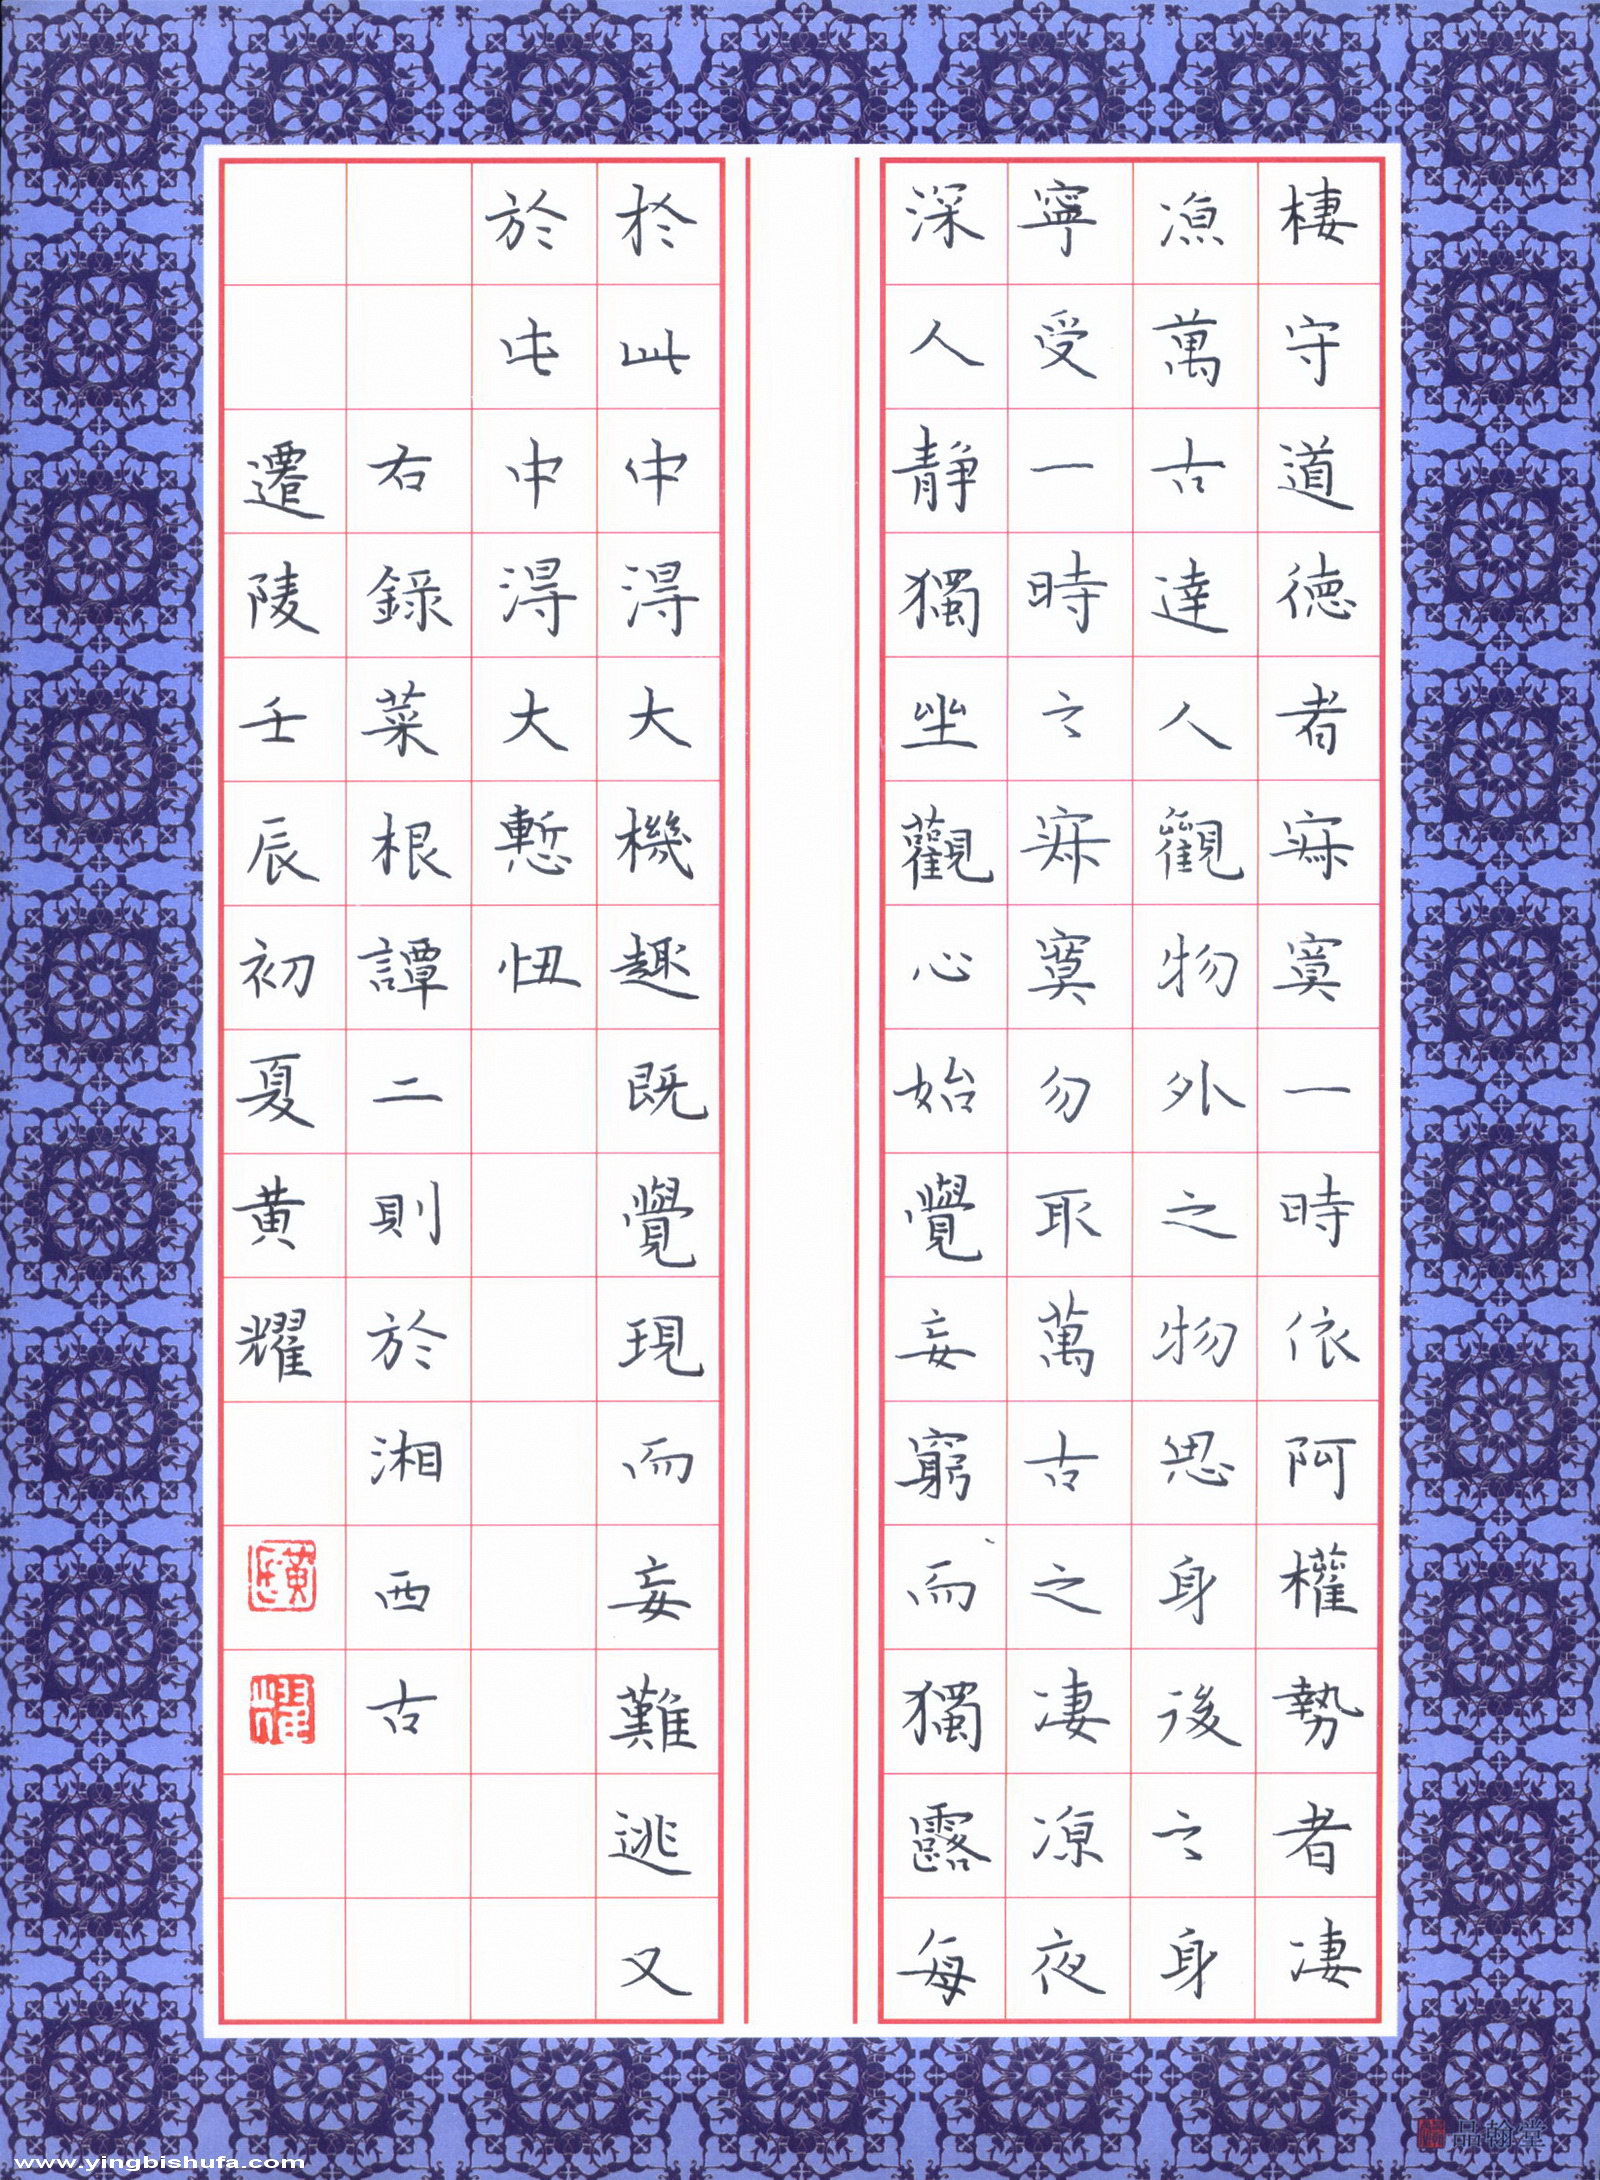 棲守道徳者寂寞一時依阿權勢者凄
凉萬古達人觀物外之物思身後之身
寧受一時之寂寞勿取萬古之凄凉夜
深人靜獨坐觀心始覺妄窮而獨露每
於此中得大機趣既覺現而妄難逃又
於此中得大慙忸
右錄菜根譚二則於湘西古
遷陵壬辰初夏黃耀
耀
品翰堂
www.yingbishufa.com